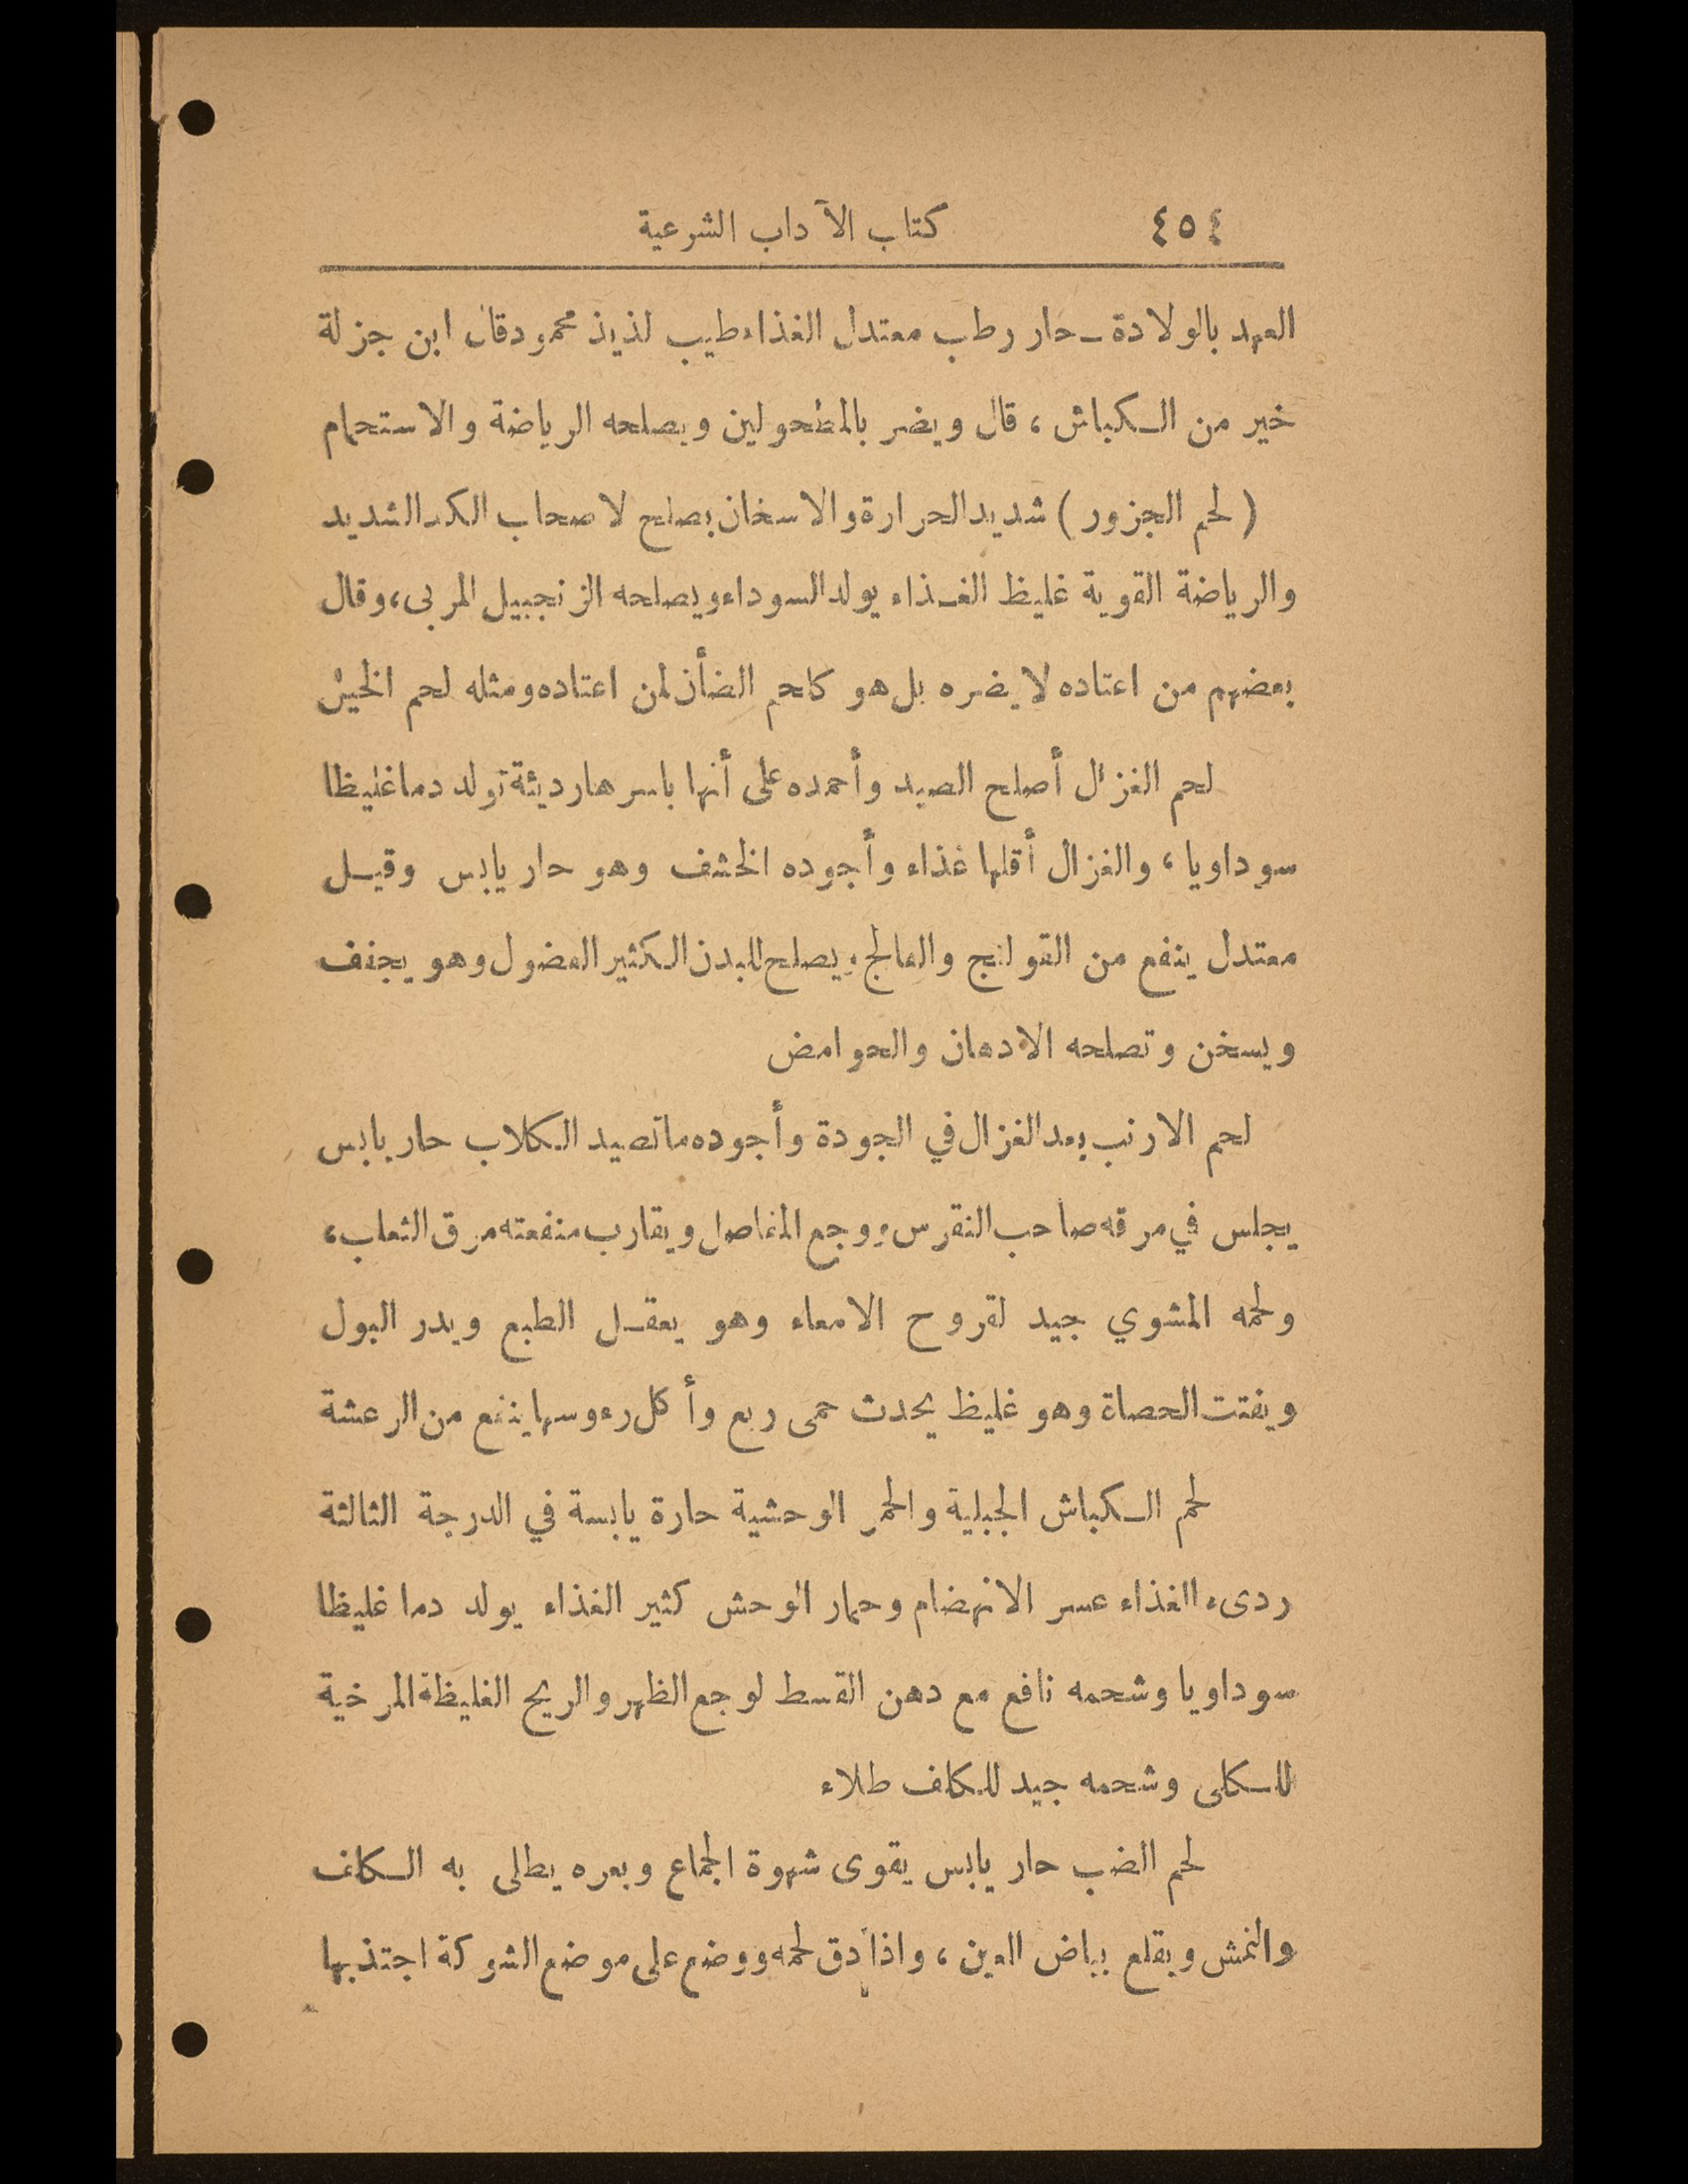 ٤٥٤ كتاب الآداب الشرعية
العهد بالولادة ـ حار رطب معتدل الغذاء طيب لذيذ محمود قال ابن جزلة
خير من الكباش ، قال ويضر بالمطحولين ويصلحه الرياضة والاستحمام
( لحم الجزور ) شديد الحرارة والاسخان يصلح لاصحاب الكد الشديد
والرياضة القوية غليظ الغذاء يولد السوداء ويصلحه الزنجبيل المربى، وقال
بعضهم من اعتاده لا يضره بل هو كلحم الضأن لمن اعتاده ومثله لحم الخيل
لحم الغزال أصلح الصيد وأحمده على أنها باسرها رديئة تولد دما غليظا
سوداويا ، والغزال أقلها غذاء وأجوده الخشف وهو حار يابس وقيل
معتدل ينفع من القولنج والفالج ويصلح للبدن الكثير الفضول وهو يجفف
ويسخن وتصلحه الادهان والحوامض
لحم الارنب بعد الغزال في الجودة وأجوده ما تصيد الكلاب حار يابس
يجلس في مرقه صاحب النقرس ووجع المفاصل ويقارب منفعته مرق الثعلب،
ولحمه المشوي جيد لقروح الامعاء وهو يعقل الطبع ويدر البول
ويفتت الحصاة وهو غليظ يحدث حمى ربع وأكل رءوسها ينفع من الرعشة
لحم الكباش الجبلية والحمر الوحشية حارة يابسة في الدرجة الثالثة
ردىء الغذاء عسر الانهضام وحمار الوحش كثير الغذاء يولد دما غليظا
سوداويا وشحمه نافع مع دهن القسط لوجع الظهر والريح الغليظة المرخية
للكلى وشحمه جيد للكلف طلاء
لحم الضب حار يابس يقوى شهوة الجماع وبعره يطلى به الكلف
والنمش ويقلع بياض العين ، واذا دق لحمه ووضع على موضع الشوكة اجتذبها